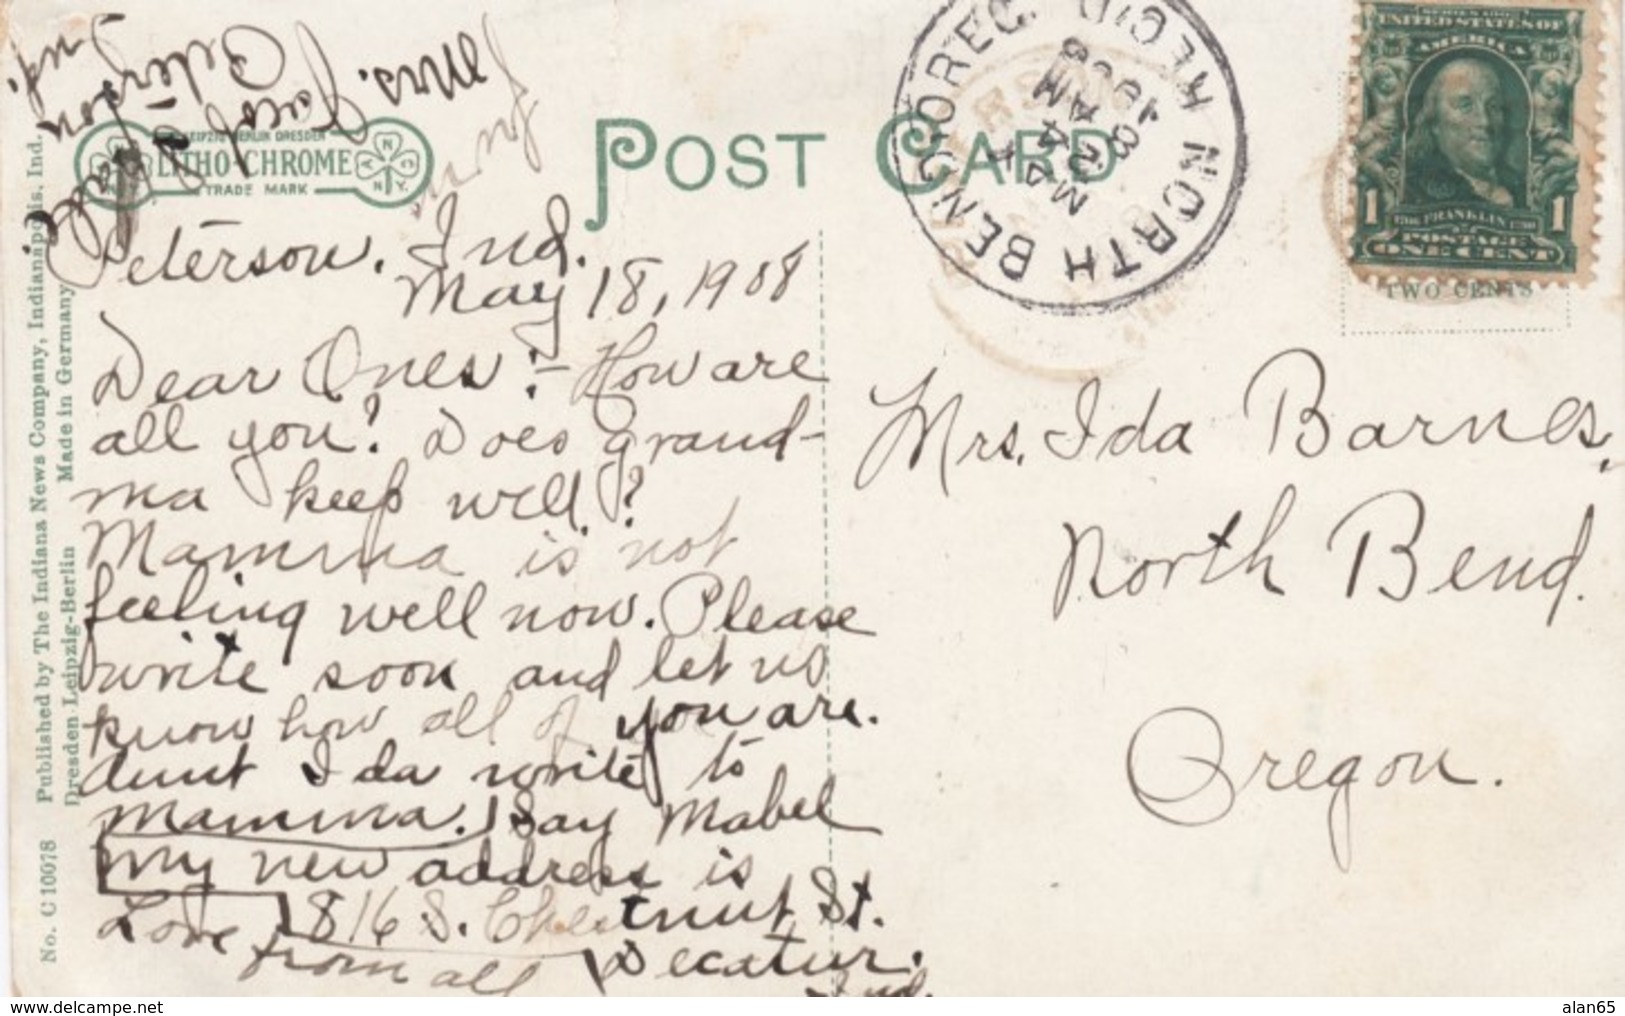 Mrs. Jacob S.
Peterson
Ind.
LEIPZIG BERLIN DRESDEN
LITHO-CHROME
TRADE MARK
POST CARD
NORTH BEND, OREG. REC'D
MAY
24
8 AM
1908
SERIES 1902
UNITED STATES OF
AMERICA
1 FRANKLIN 1
POSTAGE
ONE CENT
TWO CENTS
Peterson, Ind.
May 18, 1908
Dear Ones:- How are
all you? Does Grand-
ma keep well?
Mamma is not
feeling well now. Please
write soon and let us
know how all of you are.
Aunt Ida write to
Mamma. Say Mabel
my new address is
816 S. Chestnut St.
Decatur.
Ind.
Love from all
Mrs. Ida Barnes,
North Bend.
Oregon.
No. C 10078 Published by The Indiana News Company, Indianapolis, Ind.
Dresden-Leipzig-Berlin Made in Germany
delcampe.net
alan65